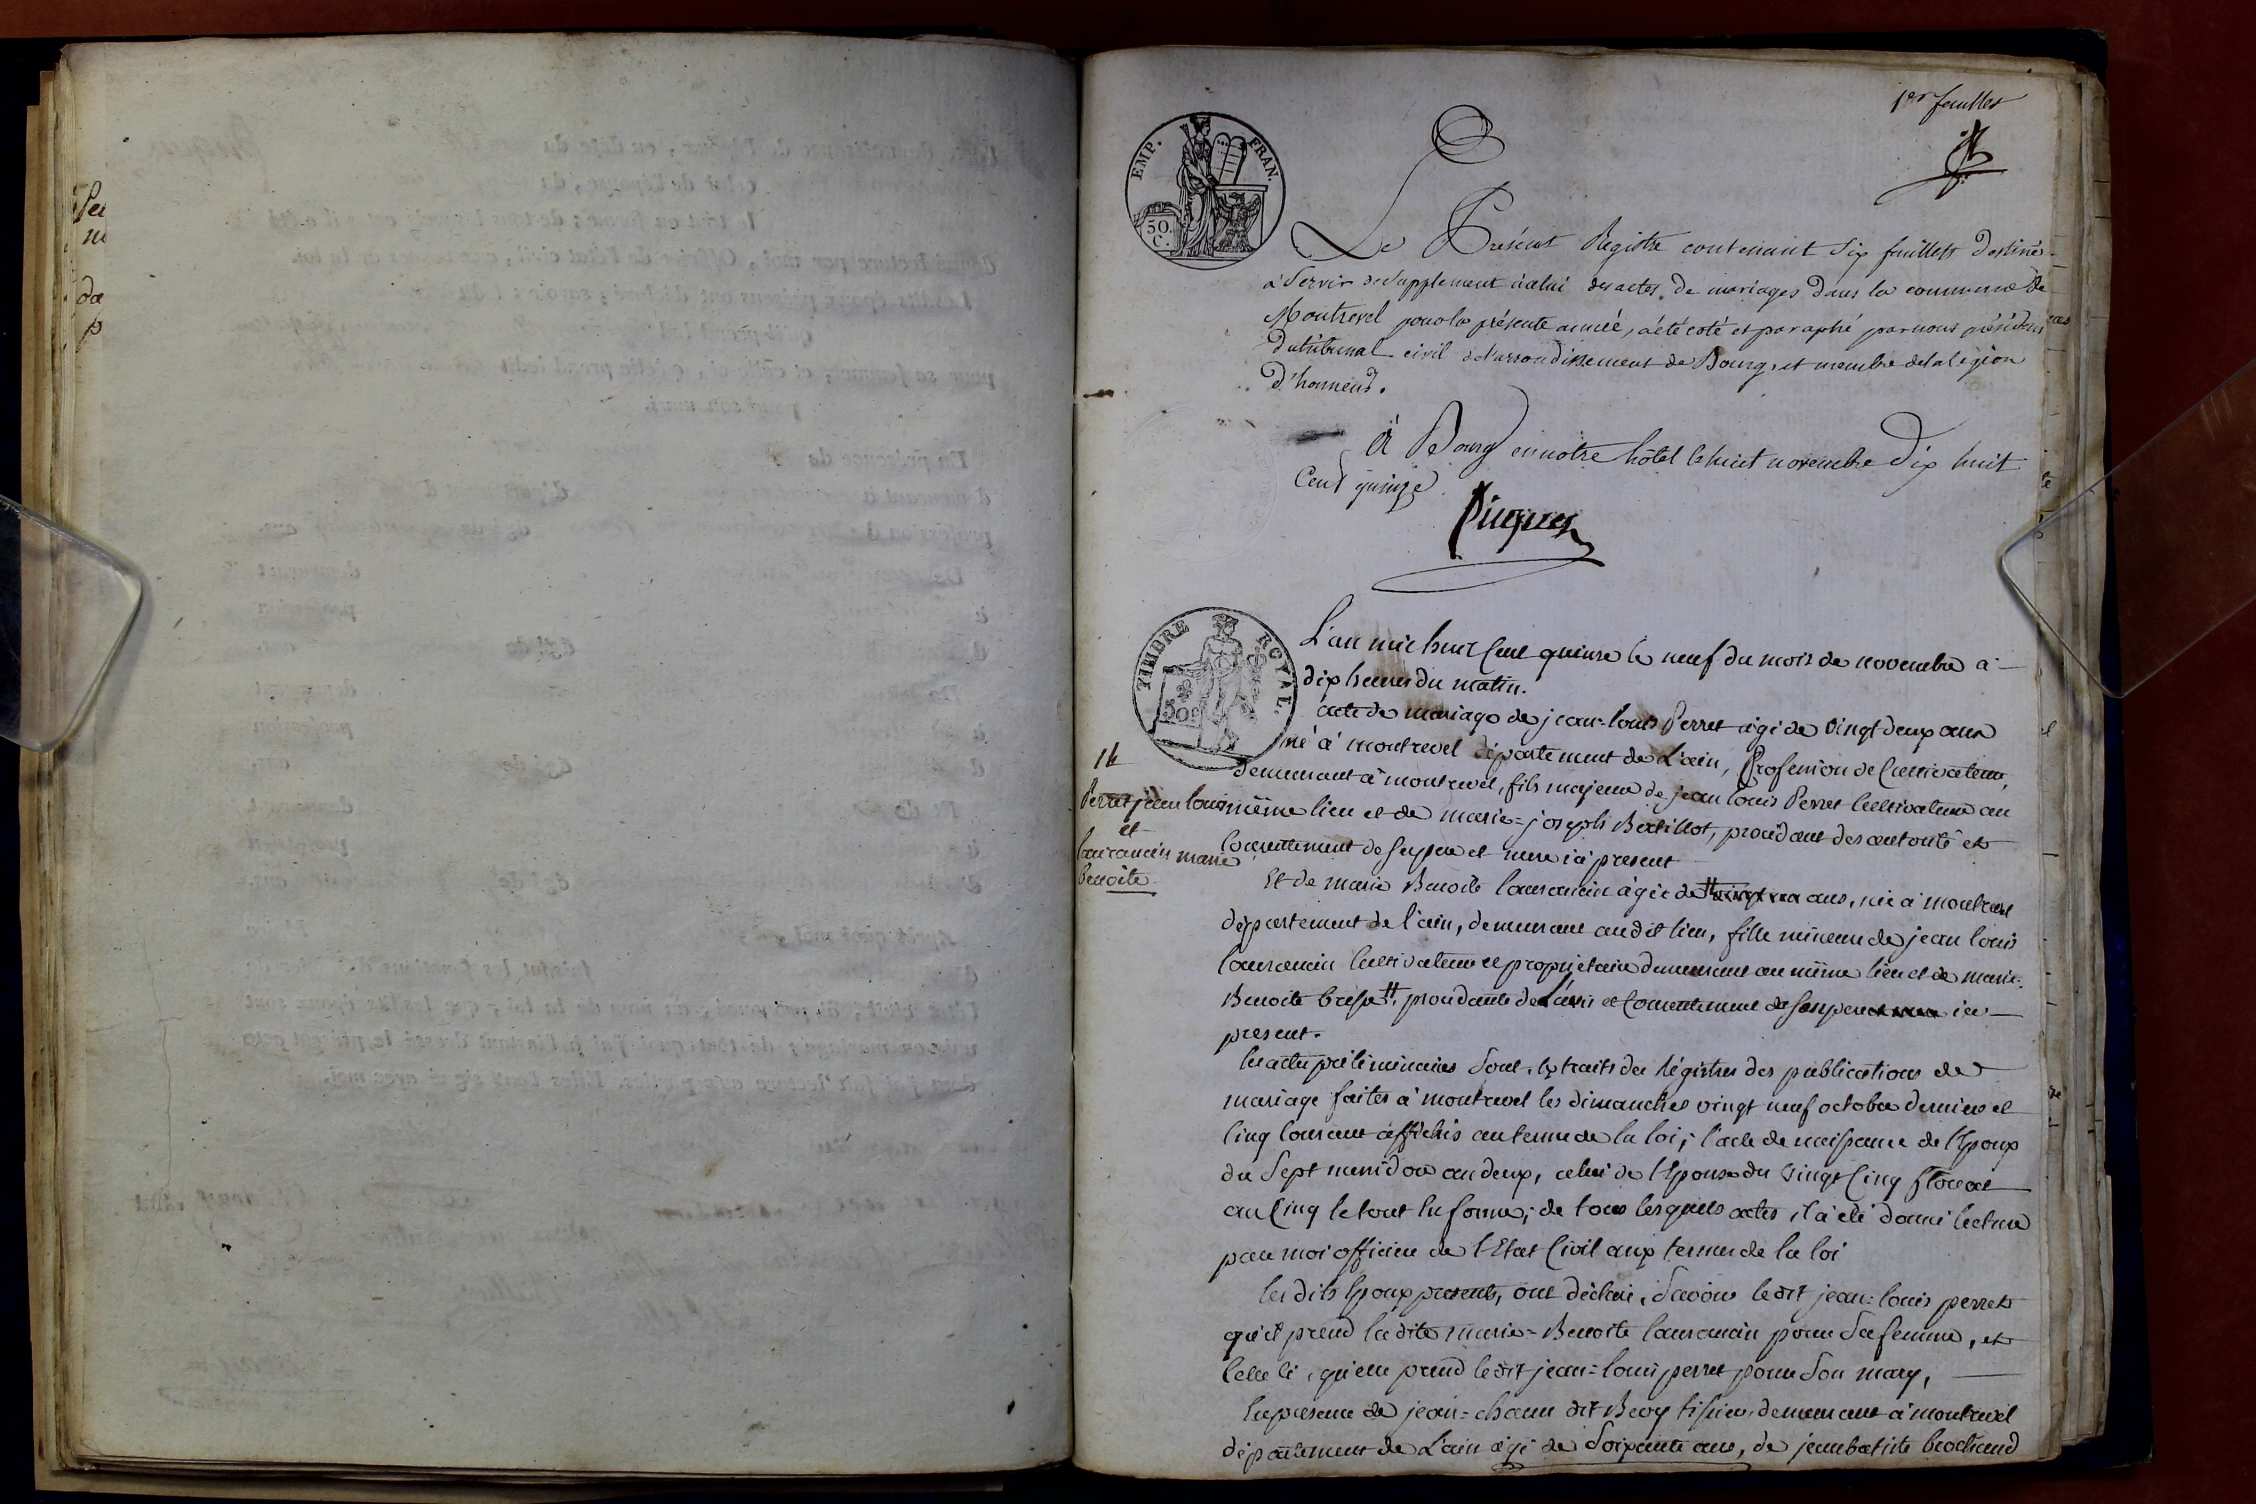 1er feuillet
EMP. FRAN.
50. C.
Le Présent Registre contenant Six feuillets Destiné
à Servir de Supplement à celui des actes de mariages dans la commune de
Montrevel pour la présente année, a été coté et paraphé par nous président
du tribunal civil de l'arrondissement de Bourg, et membre de la légion
D'honneur.
A Bourg en notre hôtel le huit novembre Dix huit
Cent quinze
TIMBRE ROYAL.
50c
L'an mil huit Cent quinze le neuf du mois de novembre a
dix heures du matin.
acte de mariage de jean-louis Perret agé de vingt deux ans
né à montrevel département de L'ain, Profession de Cultivateur,
demeurant à montrevel, fils majeur de jean louis Perret Cultivateur au
même lieu et de marie-joseph Bertillot, procédant des autorité et
Consentement de ses pere et mere ici présent
14
Perret jean louis
et
lauransin marie
benoite
Et de marie Benoite lauransin agée de ans, née a montrevel
département de l'ain, demeurant audit lieu, fille mineure de jean louis
lauransin Cultivateur et propriétaire demeurant au même lieu et de marie-
Benoite procédante de L'avis et Consentement de son pere ici
présent.
les actes préliminaires sont, extraits des Régistres des publications de
mariage faites à montrevel les dimanches vingt neuf octobre dernier et
Cinq Courant affichés au terme de la loi; l'acte de naissance de l'Epoux
du Sept an deux, celui de l'Epouse du Vingt Cinq floreal
an Cinq le tout En forme; de tous lesquels actes il a été donné lecture
par moi officier de l'Etat Civil aux termes de la loi
les dits Epoux presents, ont déclaré, Savoir ledit jean-louis perret
qu'il prend ladite marie-Benoite lauransin pour Sa femme, et
Celle Ci, qu'elle prend ledit jean-louis perret pour Son mary,
En présence de jean dit tisseur, demeurant à montrevel
département de L'ain agé de Soixante ans, de jeanbatiste brochand